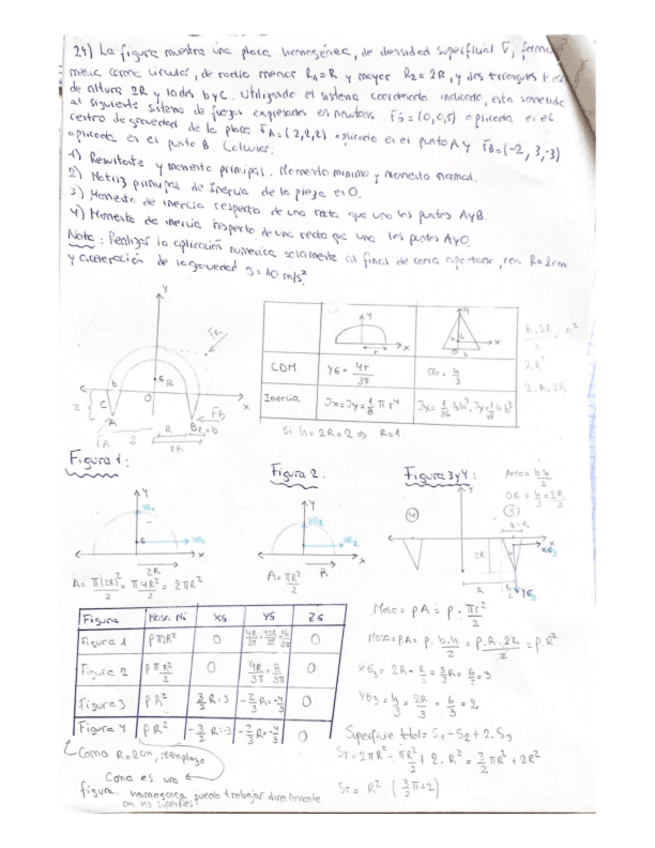 24) La figura muestra una placa homogénea, de densidad superficial σ, forma
media corona circular, de radio menor R₁=R y mayor R₂=2R, y dos triángulos
de altura 2R y lados b y c. Utilizando el sistema coordenado indicado, esta sometida
al siguiente sistema de fuerzas expresadas en newtons. FG=(0,0,5) aplicada en el
centro de gravedad de la placa FA=(2,2,2) aplicada en el punto A y FB=(-2,3,-3)
aplicada en el punto B. Calcular:
1) Resultante y momento principal. Momento mínimo y momento normal.
2) Matriz principal de Inercia de la pieza en O.
3) Momento de inercia respecto de una recta que une los puntos A y B.
4) Momento de inercia respecto de una recta que une los puntos A y O.
Nota: Realizar la aplicación numérica solamente al final de cada apartado, con R=2cm
y aceleración de la gravedad g=10 m/s²
y
b O x
C
A B
FA FB
R
2R
y x r
y x h b
CDM YG = 4r/3π OG = h/3
Inercia Jx=Jy=1/8 π r⁴ Jx= 1/36 bh³,
Si h=2R=2 ⇒ R=1
Figura 1:
Figura 2.
Figura 3 y 4:
Area= b·h/2
OG = h/3 = 2R/3
y x 2R
A= π(2R)²/2 = π4R²/2 = 2πR²
y x R
A= πR²/2
y 4 3 b=R 2R R
Figura Masa Mi XG YG ZG
Figura 1 ρπ2R² 0 0
Figura 2 ρπR²/2 0 4R/3π = 8/3π 0
Figura 3 ρR² 3/2R=3 -2/3R=-4/3 0
Figura 4 ρR² -3/2R=-3 -2/3R=-4/3 0
Masa= ρA= ρ· πr²/2
Masa=ρA= ρ· b·h/2 = ρ·R·2R/2 = ρR²
XG₃ = 2R - R/2 = 3/2R = 6/2 = 3
YG₃ = h/3 = 2R/3 = 6/3 = 2
Superficie total= S₁-S₂+2·S₃
ST= 2πR² - πR²/2 + 2·R² = 3/2 πR² + 2R²
ST = R²·(3/2π+2)
Como R=2cm, reemplazo
Como es una
figura homogenea puedo trabajar directamente
con las superficies.